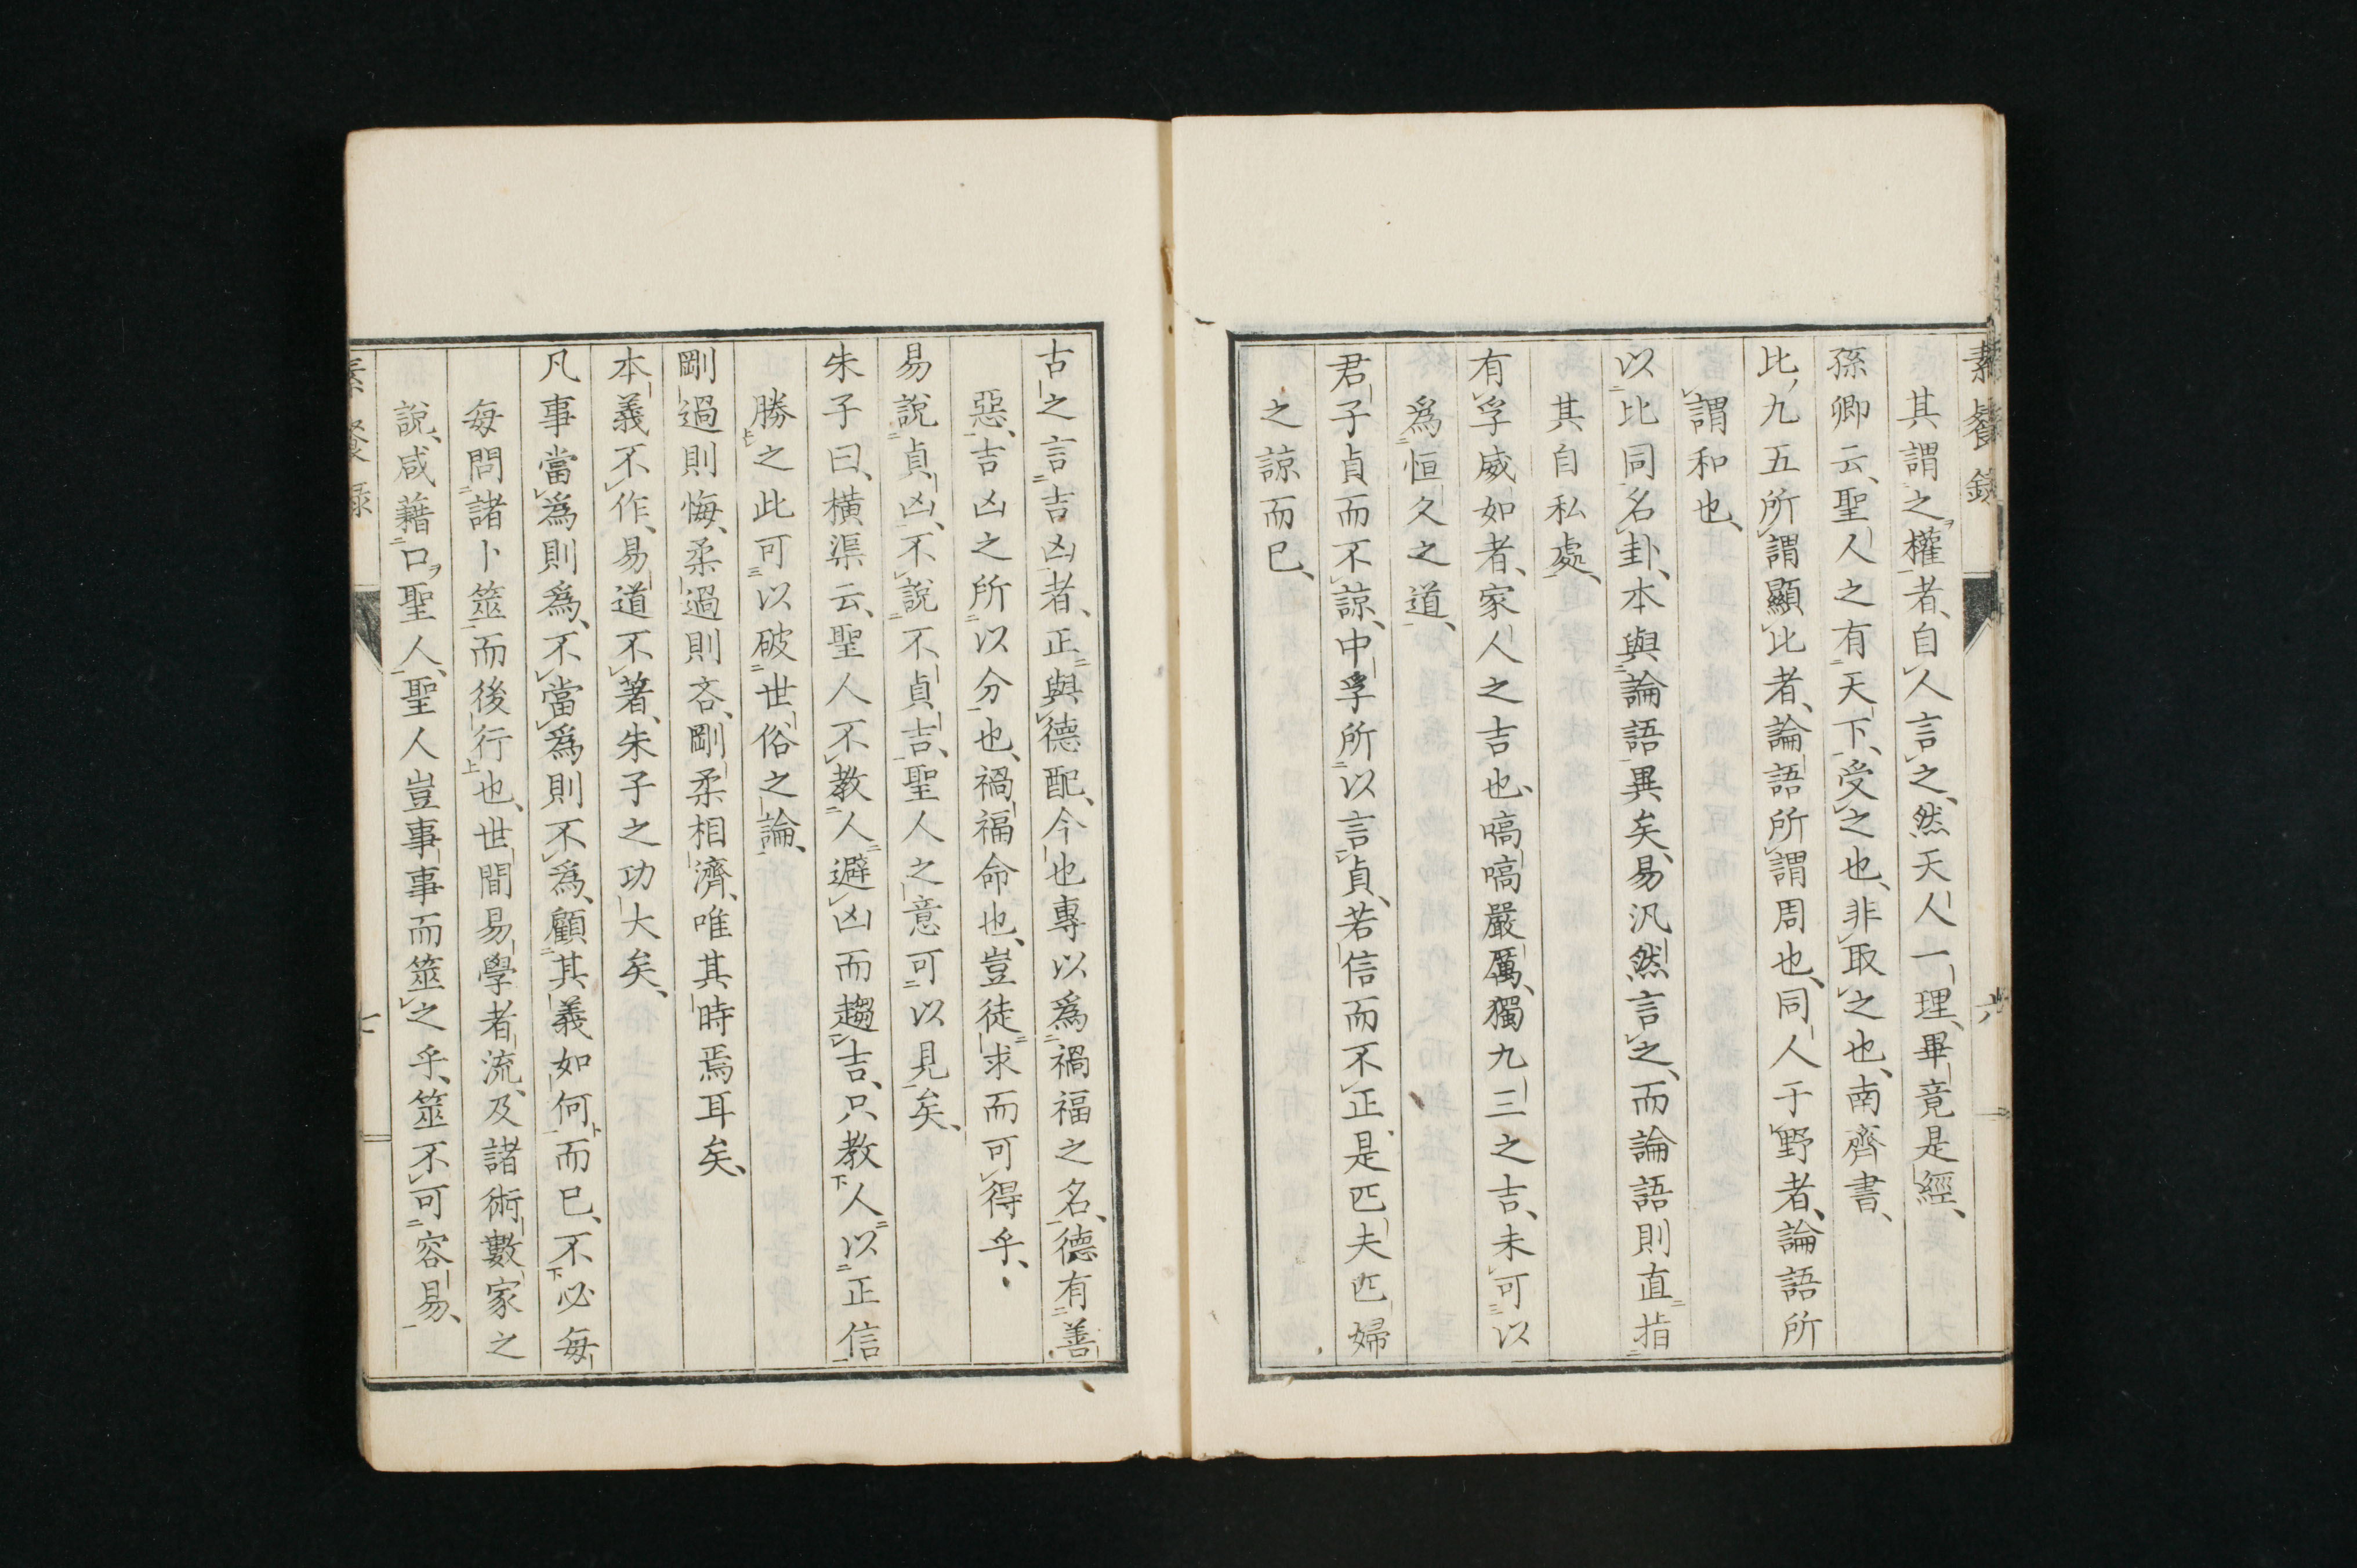 素餐録
六
其謂之權者、自人言之、然天人一理、畢竟是經、
孫卿云、聖人之有天下、受之也、非取之也、南齊書、
比、九五所謂顯比者、論語所謂周也、同人于野者、論語所
謂和也、
以比同名卦、本與論語異矣、易汎然言之、而論語則直指
其自私處、
有孚威如者、家人之吉也、嗃嗃嚴厲、獨九三之吉、未可以
爲恒久之道、
君子貞而不諒、中孚所以言貞、若信而不正、是匹夫匹婦
之諒而已、
古之言吉凶者、正與德配、今也專以爲禍福之名、德有善
惡、吉凶之所以分也、禍福命也、豈徒求而可得乎、
易說貞凶、不說不貞吉、聖人之意可以見矣、
朱子曰、橫渠云、聖人不教人避凶而趨吉、只教人以正信
勝之此可以破世俗之論、
剛過則悔、柔過則吝、剛柔相濟、唯其時焉耳矣、
本義不作、易道不著、朱子之功大矣、
凡事當爲則爲、不當爲則不爲、顧其義如何而已、不必每
每問諸卜筮而後行也、世間易學者流、及諸術數家之
說、咸藉口聖人、聖人豈事事而筮之乎、筮不可容易、
素餐録
七